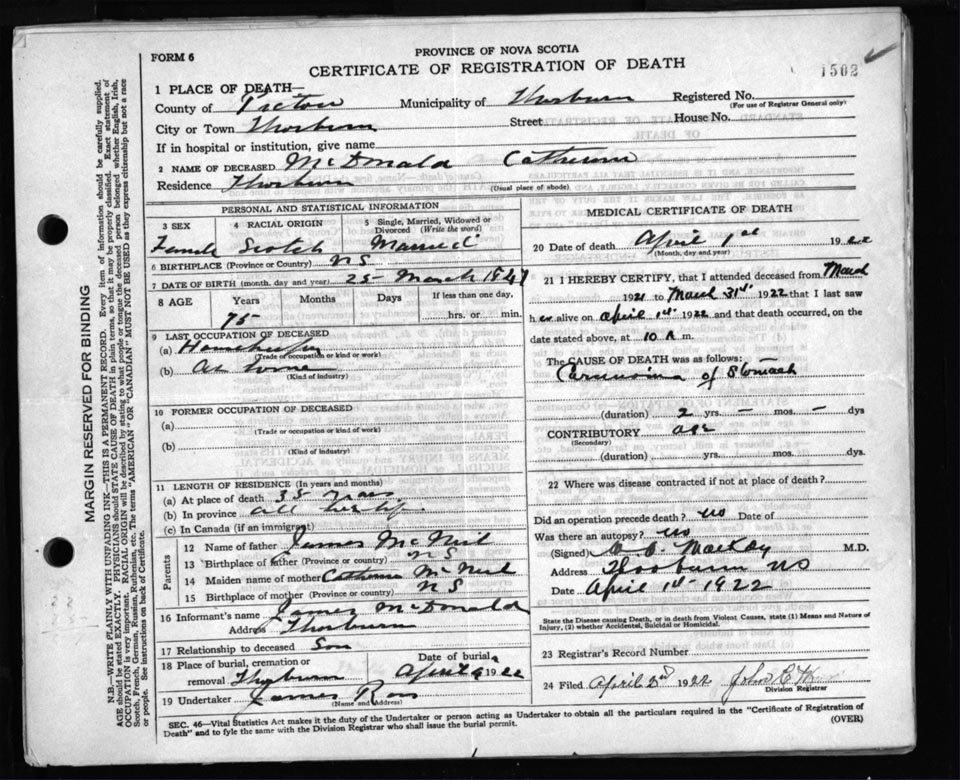 PROVINCE OF NOVA SCOTIA
FORM 6
CERTIFICATE OF REGISTRATION OF DEATH
1502
1 PLACE OF DEATH—
County of Pictou Municipality of Thorburn Registered No.
(For use of Registrar General only)
City or Town Thorburn Street House No.
If in hospital or institution, give name
2 NAME OF DECEASED McDonald Catherine
Residence Thorburn (Usual place of abode)
PERSONAL AND STATISTICAL INFORMATION
3 SEX 4 RACIAL ORIGIN 5 Single, Married, Widowed or Divorced (Write the word)
Female Scotch Married
6 BIRTHPLACE (Province or Country) NS
7 DATE OF BIRTH (month, day and year) 25 March 1847
8 AGE Years Months Days If less than one day,
75 hrs. or min.
9 LAST OCCUPATION OF DECEASED
(a) Housekeeper
(Trade or occupation or kind or work)
(b) At home
(Kind of industry)
10 FORMER OCCUPATION OF DECEASED
(a)
(Trade or occupation or kind of work)
(b)
(Kind of industry)
11 LENGTH OF RESIDENCE (In years and months)
(a) At place of death 35 years
(b) In province all her life
(c) In Canada (if an immigrant)
Parents
12 Name of father James McNeil
13 Birthplace of father (Province or country) NS
14 Maiden name of mother Catherine McNeil
15 Birthplace of mother (Province or country) NS
16 Informant's name James McDonald
Address Thorburn
17 Relationship to deceased Son
18 Place of burial, cremation or removal Thorburn Date of burial April 1922
19 Undertaker James Ross
(Name and Address)
MEDICAL CERTIFICATE OF DEATH
20 Date of death April 1st 1922
(Month, day and year)
21 I HEREBY CERTIFY, that I attended deceased from March
1921 to March 31st 1922 that I last saw
h er alive on April 1st 1922 and that death occurred, on the
date stated above, at 10 A m.
The CAUSE OF DEATH was as follows:
Carcinoma of Stomach
(duration) 2 yrs. — mos. — dys
CONTRIBUTORY age
(Secondary)
(duration) yrs. mos. dys.
22 Where was disease contracted if not at place of death?
Did an operation precede death? no Date of
Was there an autopsy? no
(Signed) MacKay M.D.
Address Thorburn NS
Date April 1st 1922
State the Disease causing Death, or in death from Violent Causes, state (1) Means and Nature of
Injury, (2) whether Accidental, Suicidal or Homicidal.
23 Registrar's Record Number
24 Filed April 1922 John
Division Registrar
SEC. 46—Vital Statistics Act makes it the duty of the Undertaker or person acting as Undertaker to obtain all the particulars required in the "Certificate of Registration of
Death" and to fyle the same with the Division Registrar who shall issue the burial permit.
(OVER)
MARGIN RESERVED FOR BINDING
N.B.—WRITE PLAINLY WITH UNFADING INK—THIS IS A PERMANENT RECORD. Every item of information should be carefully supplied.
AGE should be stated EXACTLY. PHYSICIANS should STATE CAUSE OF DEATH in plain terms, so that it may be properly classified. Exact statement of
OCCUPATION is very important. RACIAL ORIGIN will be described by stating to what people or tongue the deceased person belonged whether English, Irish,
Scotch, French, German, Russian, Ruthenian, etc. The terms "AMERICAN" OR "CANADIAN" MUST NOT BE USED as they express citizenship but not a race
or people. See instructions on back of Certificate.